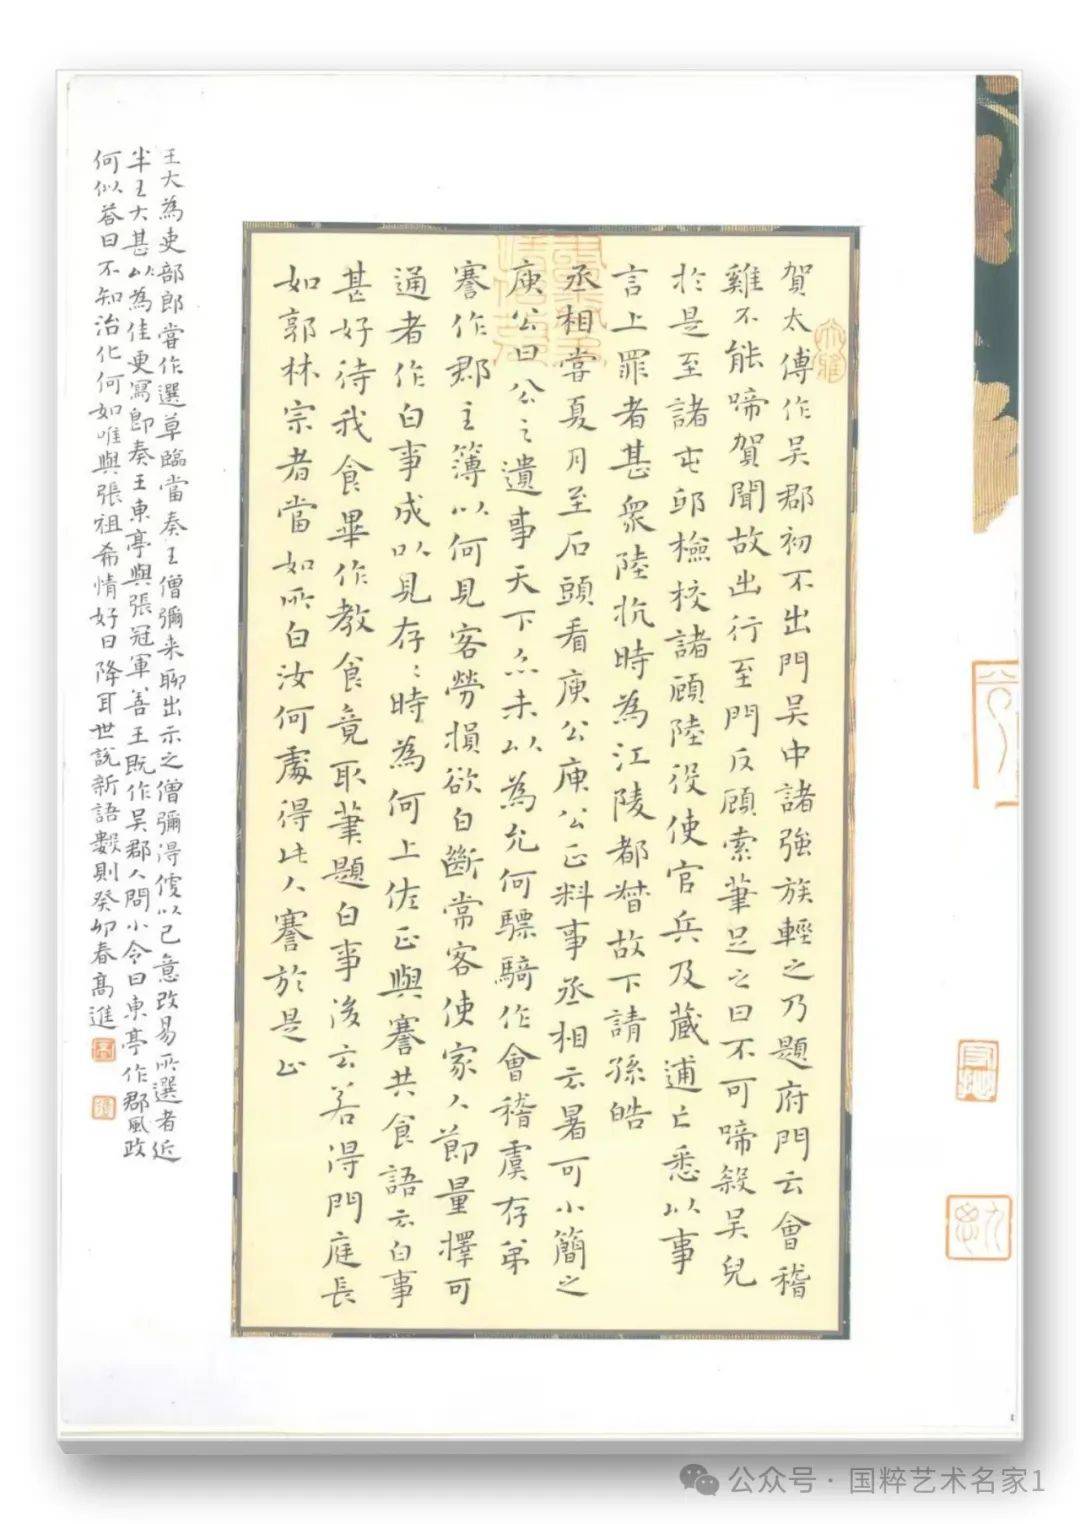 賀太傅作吴郡初不出門吴中諸強族輕之乃題府門云會稽
雞不能啼賀聞故出行至門反顧索筆足之曰不可啼殺吴兒
於是至諸屯邸檢校諸顧陸役使官兵及藏逋亡悉以事
言上罪者甚衆陸抗時為江陵都督故下請孫皓
丞相嘗夏月至石頭看庾公庾公正料事丞相云暑可小簡之
庾公曰公之遺事天下亦未以為允何驃騎作會稽虞存弟
謇作郡主簿以何見客勞損欲白斷常客使家人節量擇可
通者作白事成以見存〻時為何上佐正與謇共食語云白事
甚好待我食畢作教食竟取筆題白事後云若得門庭長
如郭林宗者當如所白汝何處得此人謇於是止
王大為吏部郎嘗作選草臨當奏王僧彌来聊出示之僧彌得便以己意改易所選者近
半王大甚以為佳更寫即奏王東亭與張冠軍善王既作吴郡人問小令曰東亭作郡風政
何似答曰不知治化何如唯與張祖希情好日隆耳世説新語數則癸卯春髙進
公众号 · 国粹艺术名家1